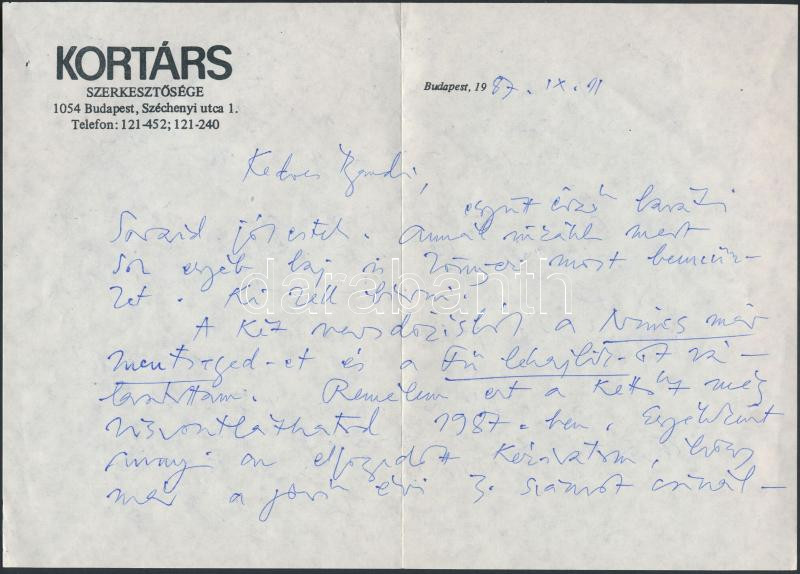 KORTÁRS
SZERKESZTŐSÉGE
1054 Budapest, Széchenyi utca 1.
Telefon: 121-452; 121-240
Budapest, 1987. IX. 11
Kedves Bandi,
együtt érző baráti
Soraid jól estek. Annál inkább mert
sok egyéb baj is most
Ki kell bírni.
darabanth
A két a Nincs már
mentséged-et és a Fű lehajlik-ot vá-
lasztottam. Remélem ezt a kettőt még
viszontláthatod 1987-ben. Egyébként
annyi az elfogadott kéziratom, hogy
már a jövő évi 3. számot csinál-